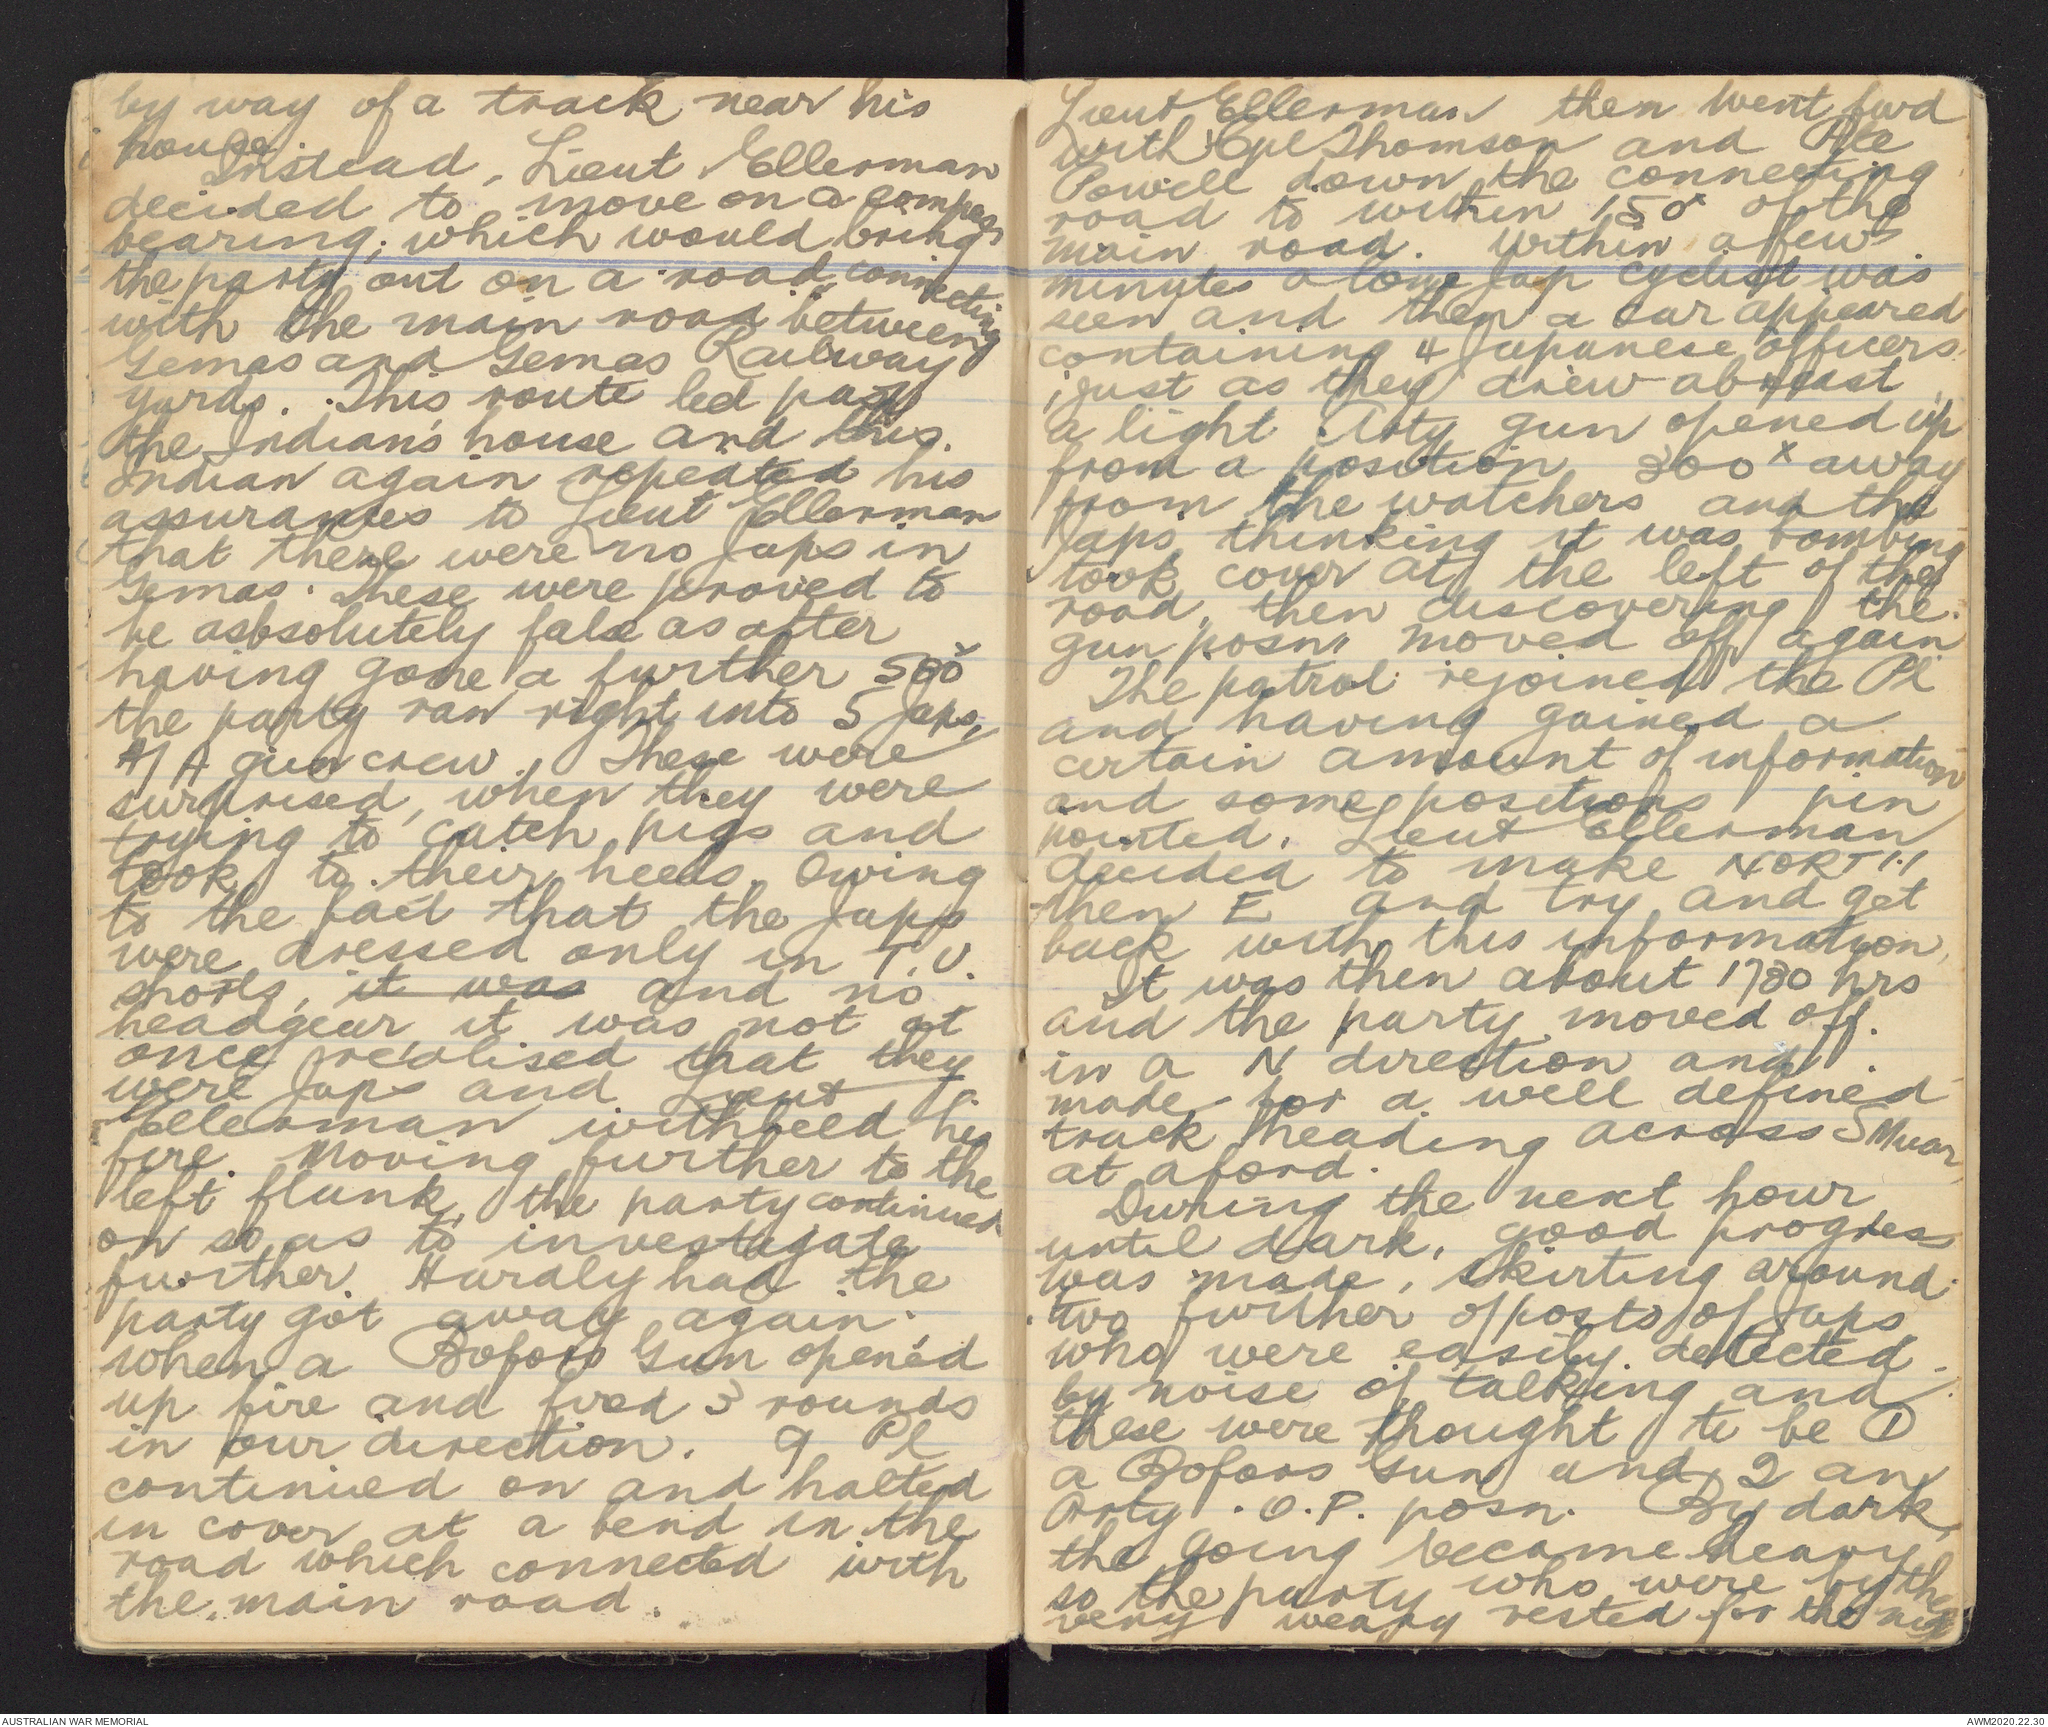 by way of a track near his
house.
Instead, Lieut Ellerman
decided to move on a compass
bearing, which would bring
the party out on a road connecting
with the main road between
Gemas and Gemas Railway
yards. This route led past
the Indian's house and this
Indian again repeated his
assurances to Lieut Ellerman
that there were no Japs in
Gemas. These were proved to
be asbsolutely false as after
having gone a further 500x
the party ran right into 5 Japs,
A/A gun crew. These were
surprised, when they were
trying to catch pigs and
took to their heels. Owing
to the fact that the Japs
were dressed only in T.U.
shorts, it was and no
headgear it was not at
once realised that they
were Japs and Lieut
Ellerman withheld his
fire. Moving further to the
left flank, the party continued
on so as to investigate
further. Hardly had the
party got away again
when a Bofors Gun opened
up fire and fired 3 rounds
in our direction. 9 Pl
continued on and halted
in cover at a bend in the
road which connected with
the main road.
Lieut Ellerman then went fwd
with Cpl Thomson and Pte
Powell down the connecting
road to within 150x of the
main road. Within a few
minutes a lone Jap cyclist was
seen and then a car appeared
containing 4 Japanese officers
just as they drew abreast
a light Arty gun opened up
from a position 300x away
from the watchers and the
Japs thinking it was bombing
took cover at the left of the
road, then discovering the
gun posn moved off again
The patrol rejoined the Pl
and having gained a
certain amount of information
and some positions pin
pointed, Lieut Ellerman
decided to make NORTH
then E and try and get
back with this information.
It was then about 1730 hrs
and the party moved off.
in a N direction and
made for a well defined
track heading across S Muar
at a ford.
During the next hour
until dark, good progress
was made, skirting around
two further o/posts of Japs
who were easily detected
by noise of talking and
these were thought to be ①
a Bofors Gun and 2 an
Arty. O.P. posn. By dark,
the going became heavy
so the party who were by then
very weary rested for the nigh